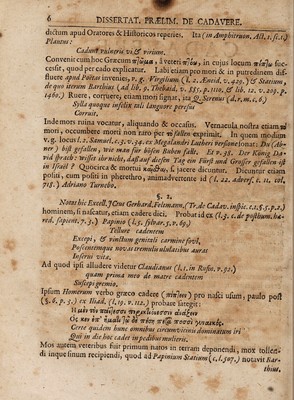 6 DISSERTAT. PRÆLIM. DE CADAVERE.
dictum apud Oratores & Historicos reperies. Ita (in Amphitruon. Act. 1. sc. 1.)
Plautus:
Cadunt vulneris vi & virium.
Convenit cum hoc Græcum πτῶμα, à veteri πίπτω, in cujus locum suc-
cessit, quod per cado explicatur. Labi etiam pro mori & in putredinem dif-
fluere apud Poëtas invenies, v. g. Virgilium (l. 2. Æneid. v. 429.) & Statium,
de quo iterum Barthius (ad lib. 5. Thebaid. v. 585. p. 1110, & lib. 12. v. 203. p.
1460.) Ruere, corruere, etiam mori signat, ita Q. Serenus (d. r. m. c. 6.)
Sylla quoque infelix tali languore peresus
Corruit.
Inde mors ruina vocatur, aliquando & occasus. Vernacula nostra etiam
mori, occumbere morti non raro per fallen exprimit. In quem modum
v. g. locus l. 2. Samuel. c. 3. v. 34. vox Megalandri Lutheri personuerat: Du (Ab-
ner) bist gefallen, wie man für bösen Buben falle. Et v. 38. Der König Da-
vid sprach: wisset ihr nicht, daß auf diesen Tag ein Fürst und Grosser gefallen ist
in Israel? Quocirca & mortui si jacere dicuntur. Dicuntur etiam
positi, cum positi in pheretho, animadvertente id (l. 22. adverf. c. 11. col,
718.) Adriano Turnebo.
§. 2.
Notat hic Excell. JCtus Gerhard. Feltmann, (Tr. de Cadav. inspic. c. 2. §. 2.)
hominem, si nascatur, etiam cadere dici. Probat id ex (l. 3. c. de postlium. ha-
red. sapient. v. 3.) Papinio (l. 5. sylvar. 5. v. 69.)
Tellure cadentem
Excepi, & vinctum genitali carmine fovi,
Poscentemque novas tremulis ululatibus auras
Inserui vita.
Ad quod ipsi alludere videtur Claudianus (l. 1. in Rufin. v. 92.)
quam prima meo de matre cadentem
Suscepi gremio.
Ipsum Homerum verbo græco cadere (πίπτειν) pro nasci usum, paulo post
(§. 6. p. 5.) ex Iliad. (l. 19. v. 112.) probare satagit:
Certe quidem hunc omnibus circumvicinis dominatum iri
Qui in die hoc cadet in pedibus mulieris.
Mos autem veteribus fuit primum natos in terram deponendi, mox tollen-
di inque sinum recipiendi, quod ad Papinium Statium (c. l. 507.) notavit Bar-
thius,